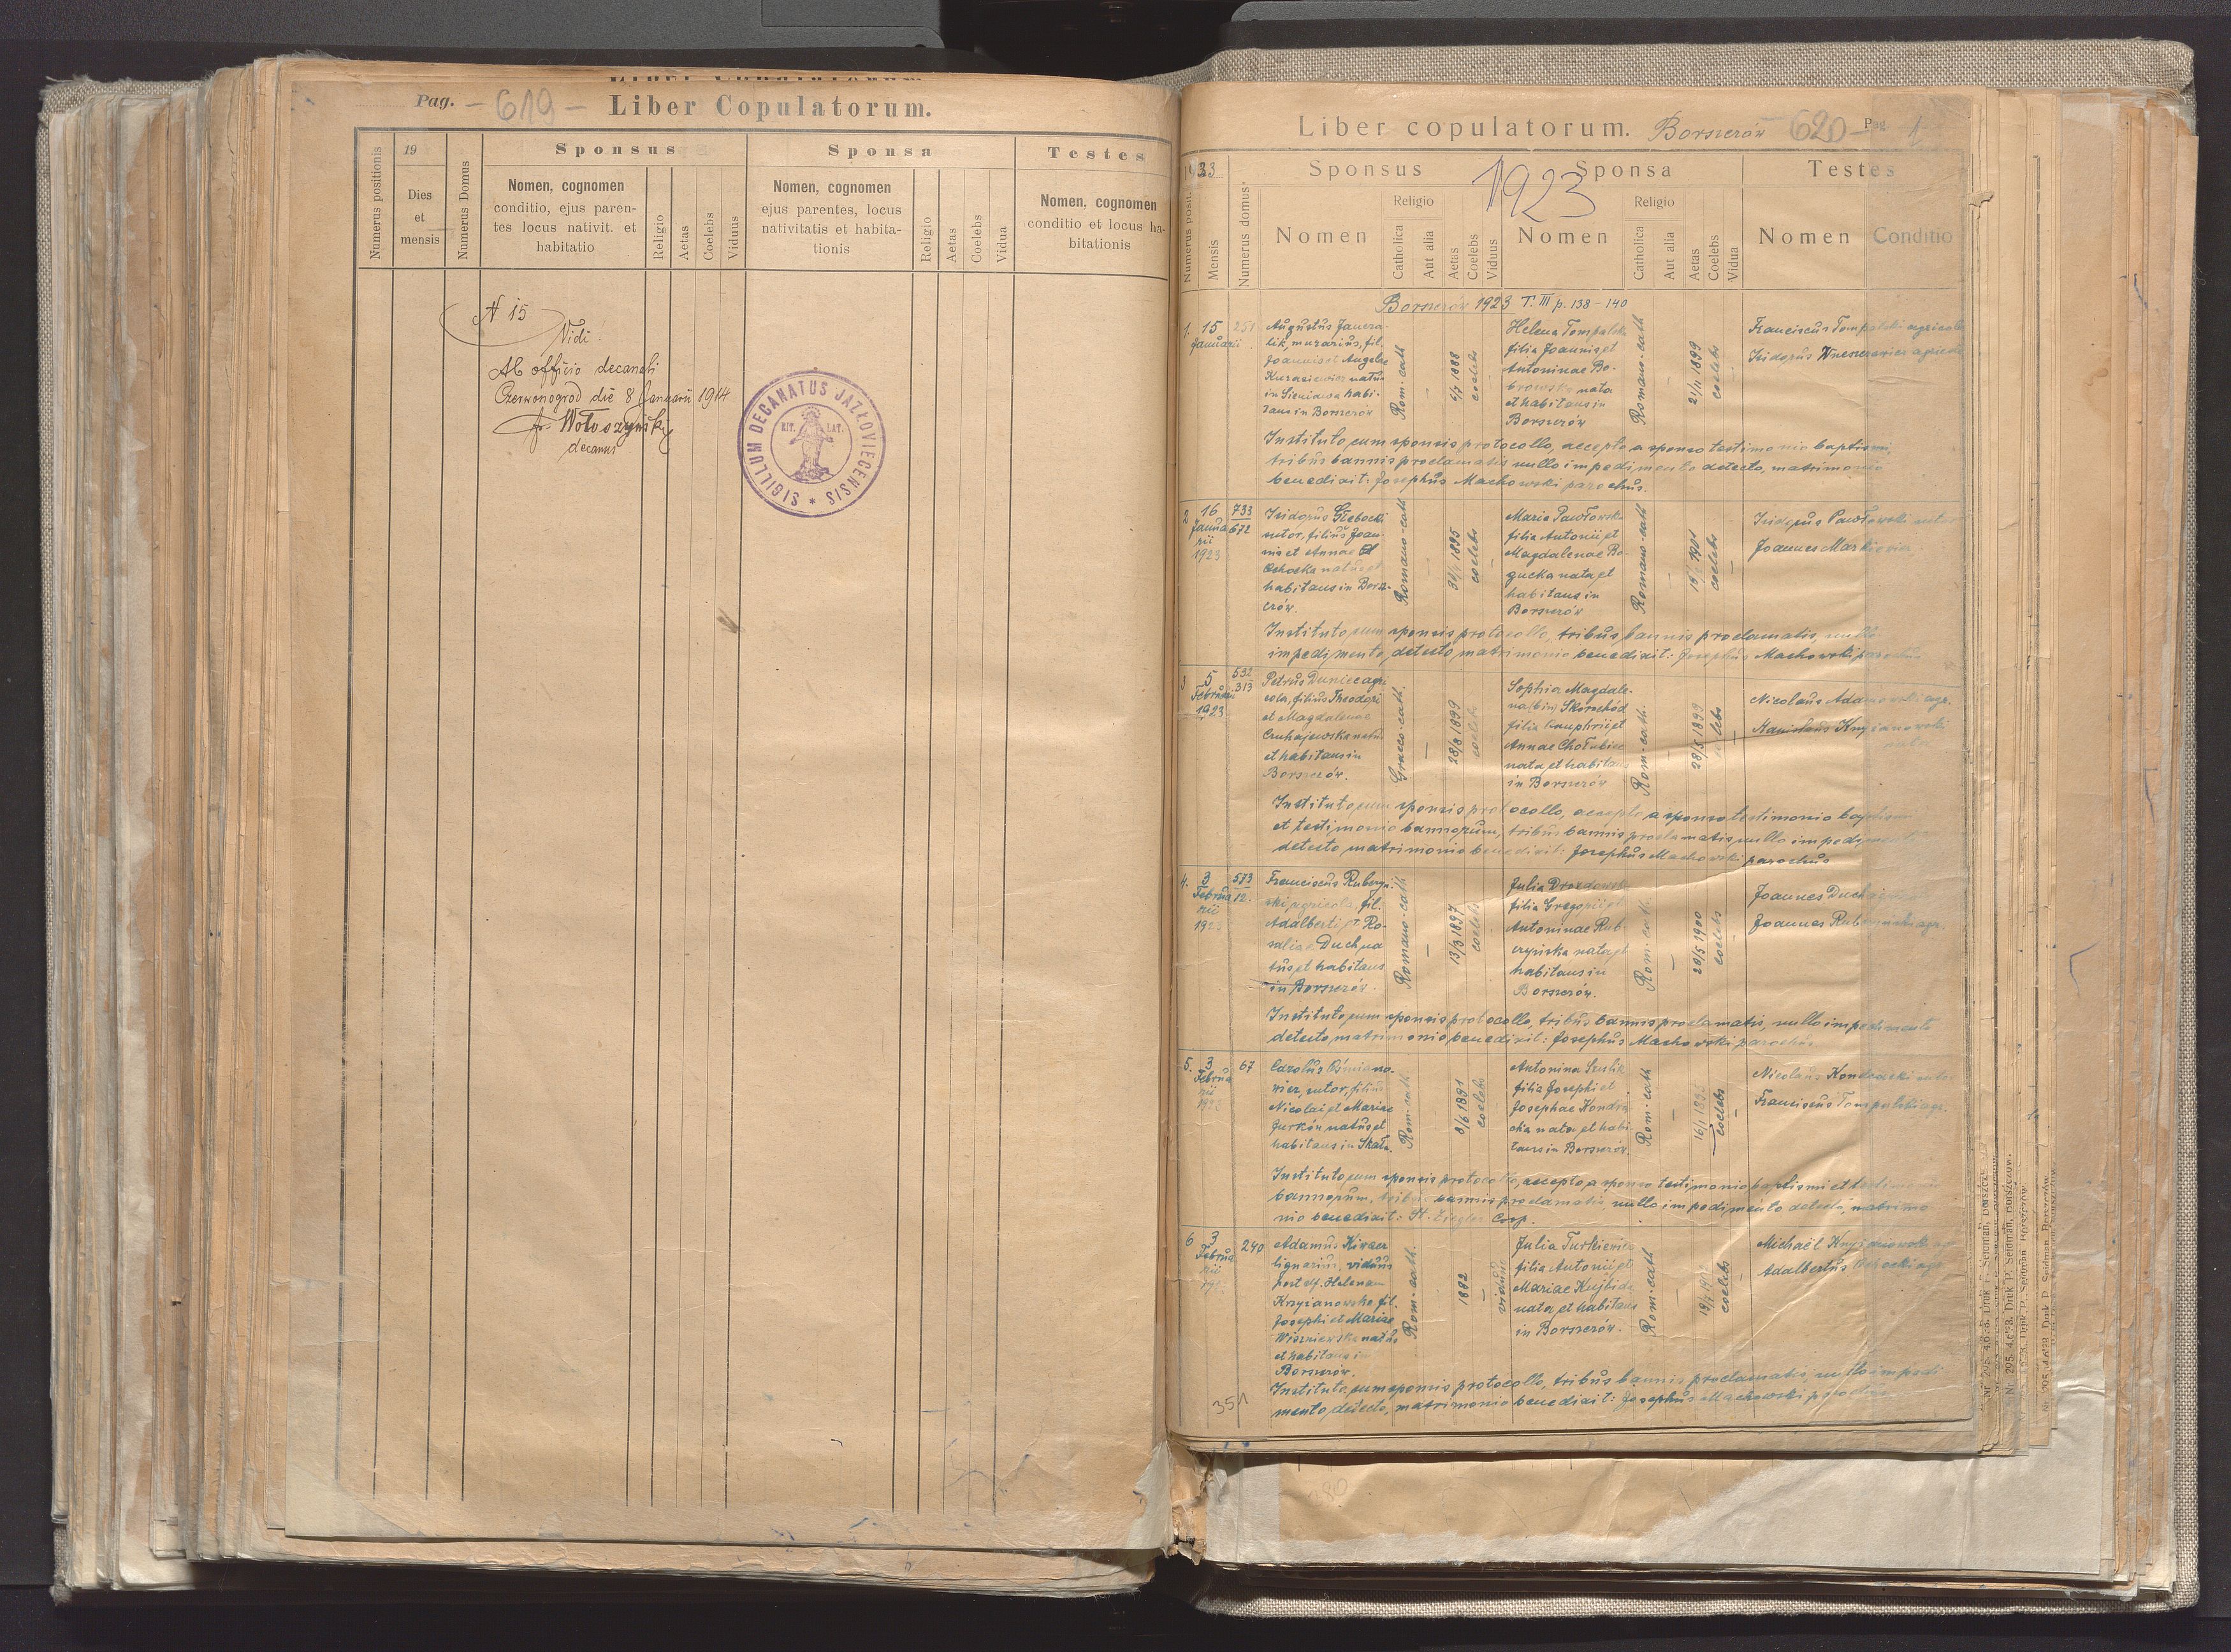 Pag. - 619 - Liber Copulatorum.
Numerus positionis
19
Dies
et
mensis
Numerus Domus
Sponsus
Nomen, cognomen
conditio, ejus paren-
tes locus nativit. et
habitatio
Religio
Aetas
Coelebs
Viduus
Sponsa
Nomen, cognomen
ejus parentes, locus
nativitatis et habita-
tionis
Religio
Aetas
Coelebs
Vidua
Testes
Nomen, cognomen
conditio et locus ha-
bitationis
N 15
Vidi
Ab officio decanali
Czerwonogrod die 8 Januarii 1914
Wołoszyński
decanus
SIGILLUM DECANATUS JAZŁOVIECENSIS *
RIT. LAT.
Liber copulatorum. Borszczów 620 - Pag. 1
1923
Numerus posit.
Mensis
Numerus domus
Sponsus
Nomen
Religio
Catholica
Aut alia
Aetas
Coelebs
Viduus
1923
Sponsa
Nomen
Religio
Catholica
Aut alia
Aetas
Coelebs
Vidua
Testes
Nomen
Conditio
Borszczów 1923 T. III p. 138-140
1. 15
Januarii
251
Augustus
lik, murarius, fil.
Joannis et Angelae
natus
in Sieniawa habi-
tans in Borszczów
Rom-cath
4/7 1888
coelebs
Helena Tompalska
filia Joannis et
Antoninae Bo-
browska nata
et habitans in
Borszczów
Romano-cath
21/11 1899
coelebs
Franciscus Tompalski agricola
Isidorus
Instituto cum sponsis protocollo, accepto a sponso testimonio baptismi,
tribus bannis proclamatis nullo impedimento detecto, matrimonio
benedixit: Josephus Machowski parochus.
2 16
Janua-
rii
1923
733
672
Isidorus Głębocki
sutor, filius Joan-
nis et Annae
Ochocka natus et
habitans in Borsz-
czów.
Romano-cath
31/1 1895
coelebs
Maria Pawłowska
filia Antonii et
Magdalenae Bo-
gucka nata et
habitans in
Borszczów
Romano-cath
1901
coelebs
Isidorus Pawłowski sutor
Joannes Markiewicz
Instituto cum sponsis protocollo, tribus bannis proclamatis, nullo
impedimento, detecto, matrimonio benedixit: Josephus Machowski parochus
3 5
Februarii
1923
532
313
Petrus Duniec agri-
cola, filius Theodori
et Magdalenae
Czuhajewska natus
et habitans in
Borszczów.
Graeco-cath.
28/8 1899
coelebs
Sophia Magdale-
na (bin) Skorochód
filia Onuphrii et
Annae Chołubiec
nata et habitans
in Borszczów
Rom-cath.
28/5 1899
coelebs
Nicolaus Adamowski agr.
Stanislaus Krzyżanowski
Instituto cum sponsis protocollo, accepto a sponso testimonio baptismi
et testimonio bannorum, tribus bannis proclamatis nullo impedimento
detecto matrimonio benedixit: Josephus Machowski parochus
4. 3
Februa-
rii
573
12.
Franciscus Ruberyń-
ski, agricola, fil.
Adalberti et Ro-
saliae Duch na
tus et habitans
in Borszczów.
Romano-cath
13/3 1897
coelebs
Julia Drozdowska
filia Gregorii et
Antoninae Rub-
eryńska nata et
habitans in
Borszczów.
Rom-cath.
20/5 1900
coelebs
Joannes Duch
Joannes Ruberyński agr.
Instituto cum sponsis protocollo, tribus bannis proclamatis, nullo impedimento
detecto, matrimonio benedixit: Josephus Machowski parochus
5. 3
Februa-
rii
67
Carolus Ośmiano-
wicz, sutor, filius
Nicolai et Mariae
Jurków natus et
habitans in Skała.
Rom-cath
8/6 1891
coelebs
Antonina
filia Josephi et
Josephae
nata et habi-
tans in Borszczów
Rom-cath
coelebs
Nicolaus Kondracki
Franciscus Tompalski agr.
Instituto cum sponsis protocollo, accepto a sponso testimonio baptismi et testimonio
bannorum, tribus bannis proclamatis, nullo impedimento detecto, matrimo
nio benedixit: St. Ziegler Coop.
6 3
Februa-
rii
240
Adamus
lignarius, viduus
post def. Helenam
Krzyżanowska fil.
Josephi et Mariae
Wiszniewska natus
et habitans in
Borszczów.
Rom-cath.
1882
viduus
Julia Turkiewicz
filia Antonii et
Mariae Kujbida
nata et habitans
in Borszczów.
Rom-cath
coelebs
Michaël
Adalbertus Ochocki agr.
Instituto, cum sponsis protocollo, tribus bannis proclamatis, nullo impedi
mento, detecto, matrimonio benedixit: Josephus Machowski parochus
351